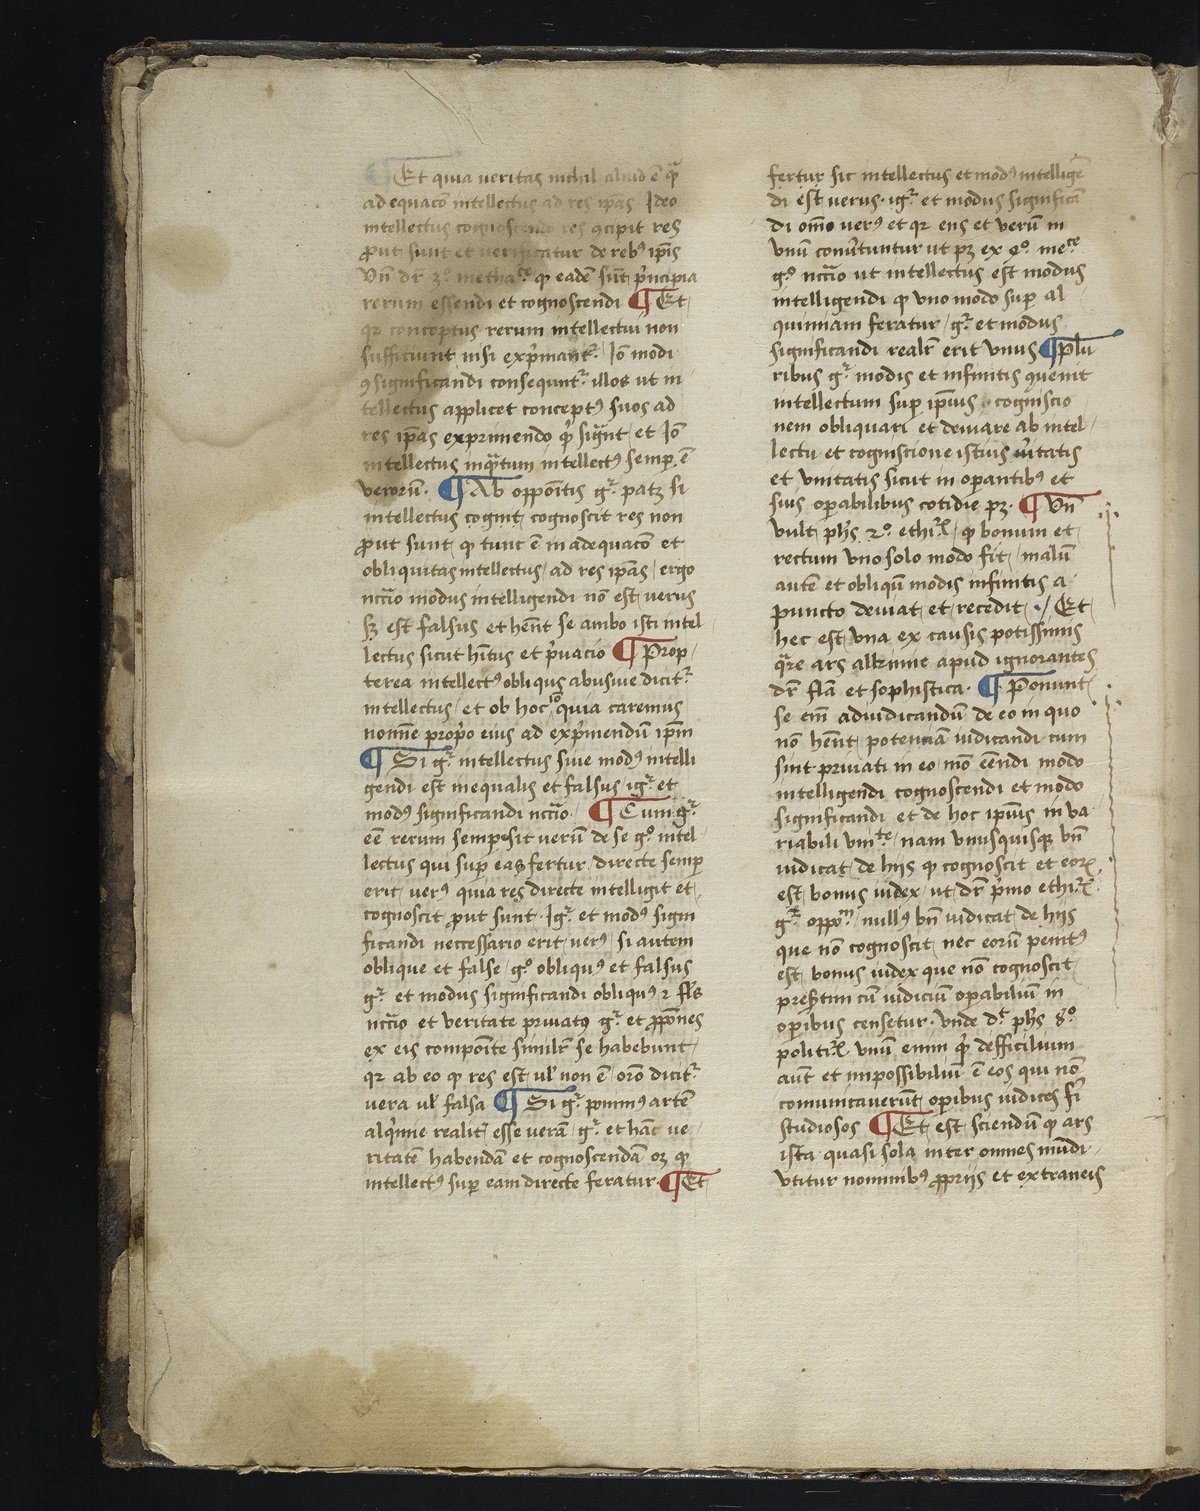 ¶ Et quia ueritas nichil aliud ē q̄
ad equacō intellectus ad res ip̄as Ideo
intellectus cognoscendo res ꝯcipit res
ꝓut sunt et uerificatur de rebꝰ ip̄is
Vn̄ dr̄ 2º metha ꝙ eadē sūt p̄ncipia
rerum essendi et cognoscendi ¶ Et
qꝛ conceptus rerum intellectui non
sufficiunt nisi exp̄mant̄ Iō modi
ꝯsignificandi consequnt̄ illos ut in
tellectus applicet conceptꝰ suos ad
res ip̄as exprimendo qd̓ sig̅nt et Iō
intellectus inq̄tum intellectꝰ semp̱ ē
verorū · ¶ Ab oppoītis gͬ patꝫ si
intellectus cognit cognoscit res non
ꝓut sunt ꝙ tunc ē in adequacō et
obliquitas intellectus ad res ip̄as ergo
nccīo modus intelligendi nō est uerus
sꝫ est falsus et hēnt se ambo isti intel
lectus sicut hītus et p̓uacio ¶ Prop
terea intellectꝰ obliqus abusiue dicit̄
intellectus et ob hoc quia caremus
nomīe perpo eius ad exp̓mendū ip̄m
¶ Si gͬ intellectus siue modꝰ intelli
gendi est inequalis et falsus igͬ et
modꝰ significandi nccīo · ¶ Cum gͬ
eē rerum semp̱ sit uerū de se gº intel
lectus qui sup̱ eas fertur directe semp̱
erit uerꝰ quia res directe intelligit et
cognoscit ꝓut sunt · Igͬ et modꝰ signi
ficandi neccessario erit uerꝰ si autem
oblique et false gº obliquꝰ et falsus
gͬ et modus significandi obliquꝰ ⁊ fls̄
nccīo et veritate priuatꝰ gͬ et ꝓpōnes
ex eis compoīte simil̓r se habebunt
qꝛ ab eo ꝙ res est ul̓ non ē orō dicit̄
uera ul̓ falsa ¶ Si gͬ ponimꝰ artē
alq̓mie realit̄ esse uerā gͬ et hāc ue
ritatē habendā et cognoscendā oꝫ ꝙ
intellectꝰ sup̱ eam directe feratur · ¶ Et
fertur sic intellectus et modꝰ intelligē
di est uerus · igͬ et modus significā
di om̄o uerꝰ et qꝛ ens et uerū in
unū conu̓tuntur ut pꝫ ex 4º me
gº nccīo ut intellectus est modus
intelligendi ꝙ uno modo sup̱ al
quinniam feratur gͬ et modus
significandi real̓r erit unus ¶ Plu
ribus gͬ modis et infinitis quenit
intellectum sup̱ ipīus cogniscio
nem obliquari et deuiare ab intel
lectu et cogniscione istius u̓itatis
et unitatis sicut in op̱antibꝰ et
suis op̱abilibus cotidie pꝫ · ¶ Vn̄
uult ph̓s 2º ethiꝝ ꝙ bonum et
rectum uno solo modo fit malū
autē et obliqū modis infinitis a
puncto deuiat et recedit · / Et
hec est una ex causis potissimis
q̄re ars alkimie apud ignorantes
dr̄ flā et sophistica · ¶ Ponunt
se em̄ adiudicandū de eo in quo
nō hēnt potenciā iudicandi cum
sint priuati in eo mō eēndi modo
intelligendi cognoscendi et modo
significandi et de hoc ipīus in ua
riabili unite nam unusquisqꝫ bn̄
iudicat de hijs ꝙ cognoscit et eoꝝ
est bonus iudex ut dr̄ p̓mo ethiꝝ
gͬ oppom̄ nullꝰ bn̄ iudicat de hijs
que nō cognoscit nec eorū penitꝰ
est bonus iudex que nō cognoscit
presertim cū iudiciū op̱abiliū in
op̱ibus censetur · unde dt̄ ph̓s 8º
politiꝝ unū enim qd̓ defficilium
aūt et impossibiliū ē eos qui nō
comunicauerūt op̱ibus iudices fi̓
studiosos ¶ Et est sciendū ꝙ ars
ista quasi sola inter omnes mūdi
utitur nominibꝰ ꝓprijs et extraneis